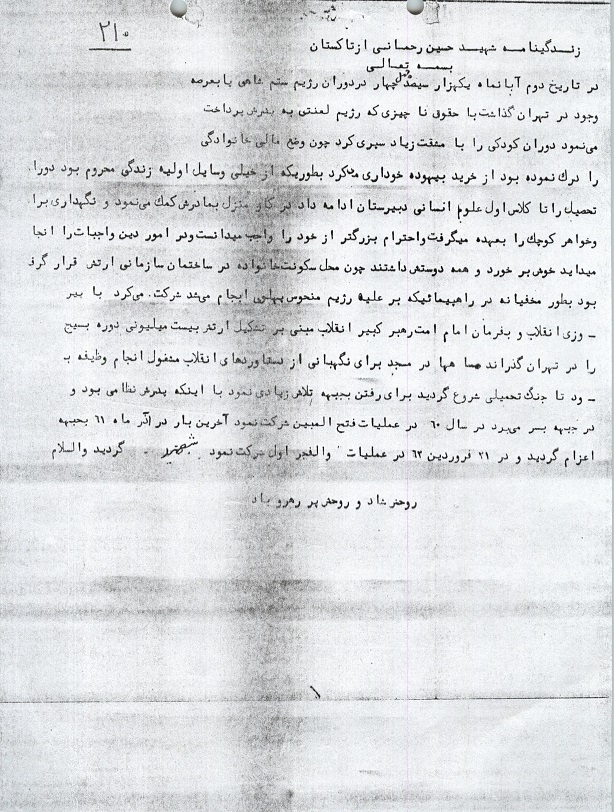 ۲۱۰
زندگینامه شهید حسین رحمانی از تاکستان
بسمه تعالی
در تاریخ دوم آبانماه یکهزار سیصد چهل چهار در دوران رژیم ستم شاهی پا بعرصه
وجود در تهران گذاشت با حقوق نا چیزی که رژیم لعنتی به پدرش پرداخت
می‌نمود دوران کودکی را با مشقت زیاد سپری کرد چون وضع مالی خانوادگی
را درك نموده بود از خرید بیهوده خوداری میکرد بطوریکه از خیلی وسایل اولیه زندگی محروم بود دورا
تحصیل را تا کلاس اول علوم انسانی دبیرستان ادامه داد در کار منزل بمادرش کمك می‌نمود و نگهداری برا
وخواهر کوچك را بعهده میگرفت واحترام بزرگتر از خود را واجب میدانست ودر امور دین واجبات را انجا
میداید خوش بر خورد و همه دوستش داشتند چون محل سکونت خانواده در ساختمان سازمانی ارتش قرار گرف
بود بطور مخفیانه در راهپیمائیکه بر علیه رژیم منحوس پهلوی انجام می‌شد شرکت. می‌کرد با پیر
ـ وزی انقلاب و بفرمان امام امت رهبر کبیر انقلاب مبنی بر تشکیل ارتش بیست میلیونی دوره بسیج
را در تهران گذراند ها در مسجد برای نگهبانی از دستاوردهای انقلاب مشغول انجام وظیفه ب
ـ ود تا جنگ تحمیلی شروع گردید برای رفتن بجبهه تلاش زیادی نمود با اینکه پدرش نظامی بود و
در جبهه بسر می‌برد در سال ۶۰ در عملیات فتح المبین شرکت نمود آخرین بار در آذر ماه ۶۱ بجبهه
اعزام گردید و در ۲۱ فروردین ۶۲ در عملیات والفجر اول شرکت نمود . گردید والسلام
روحش شاد و روحش پر رهرو باد